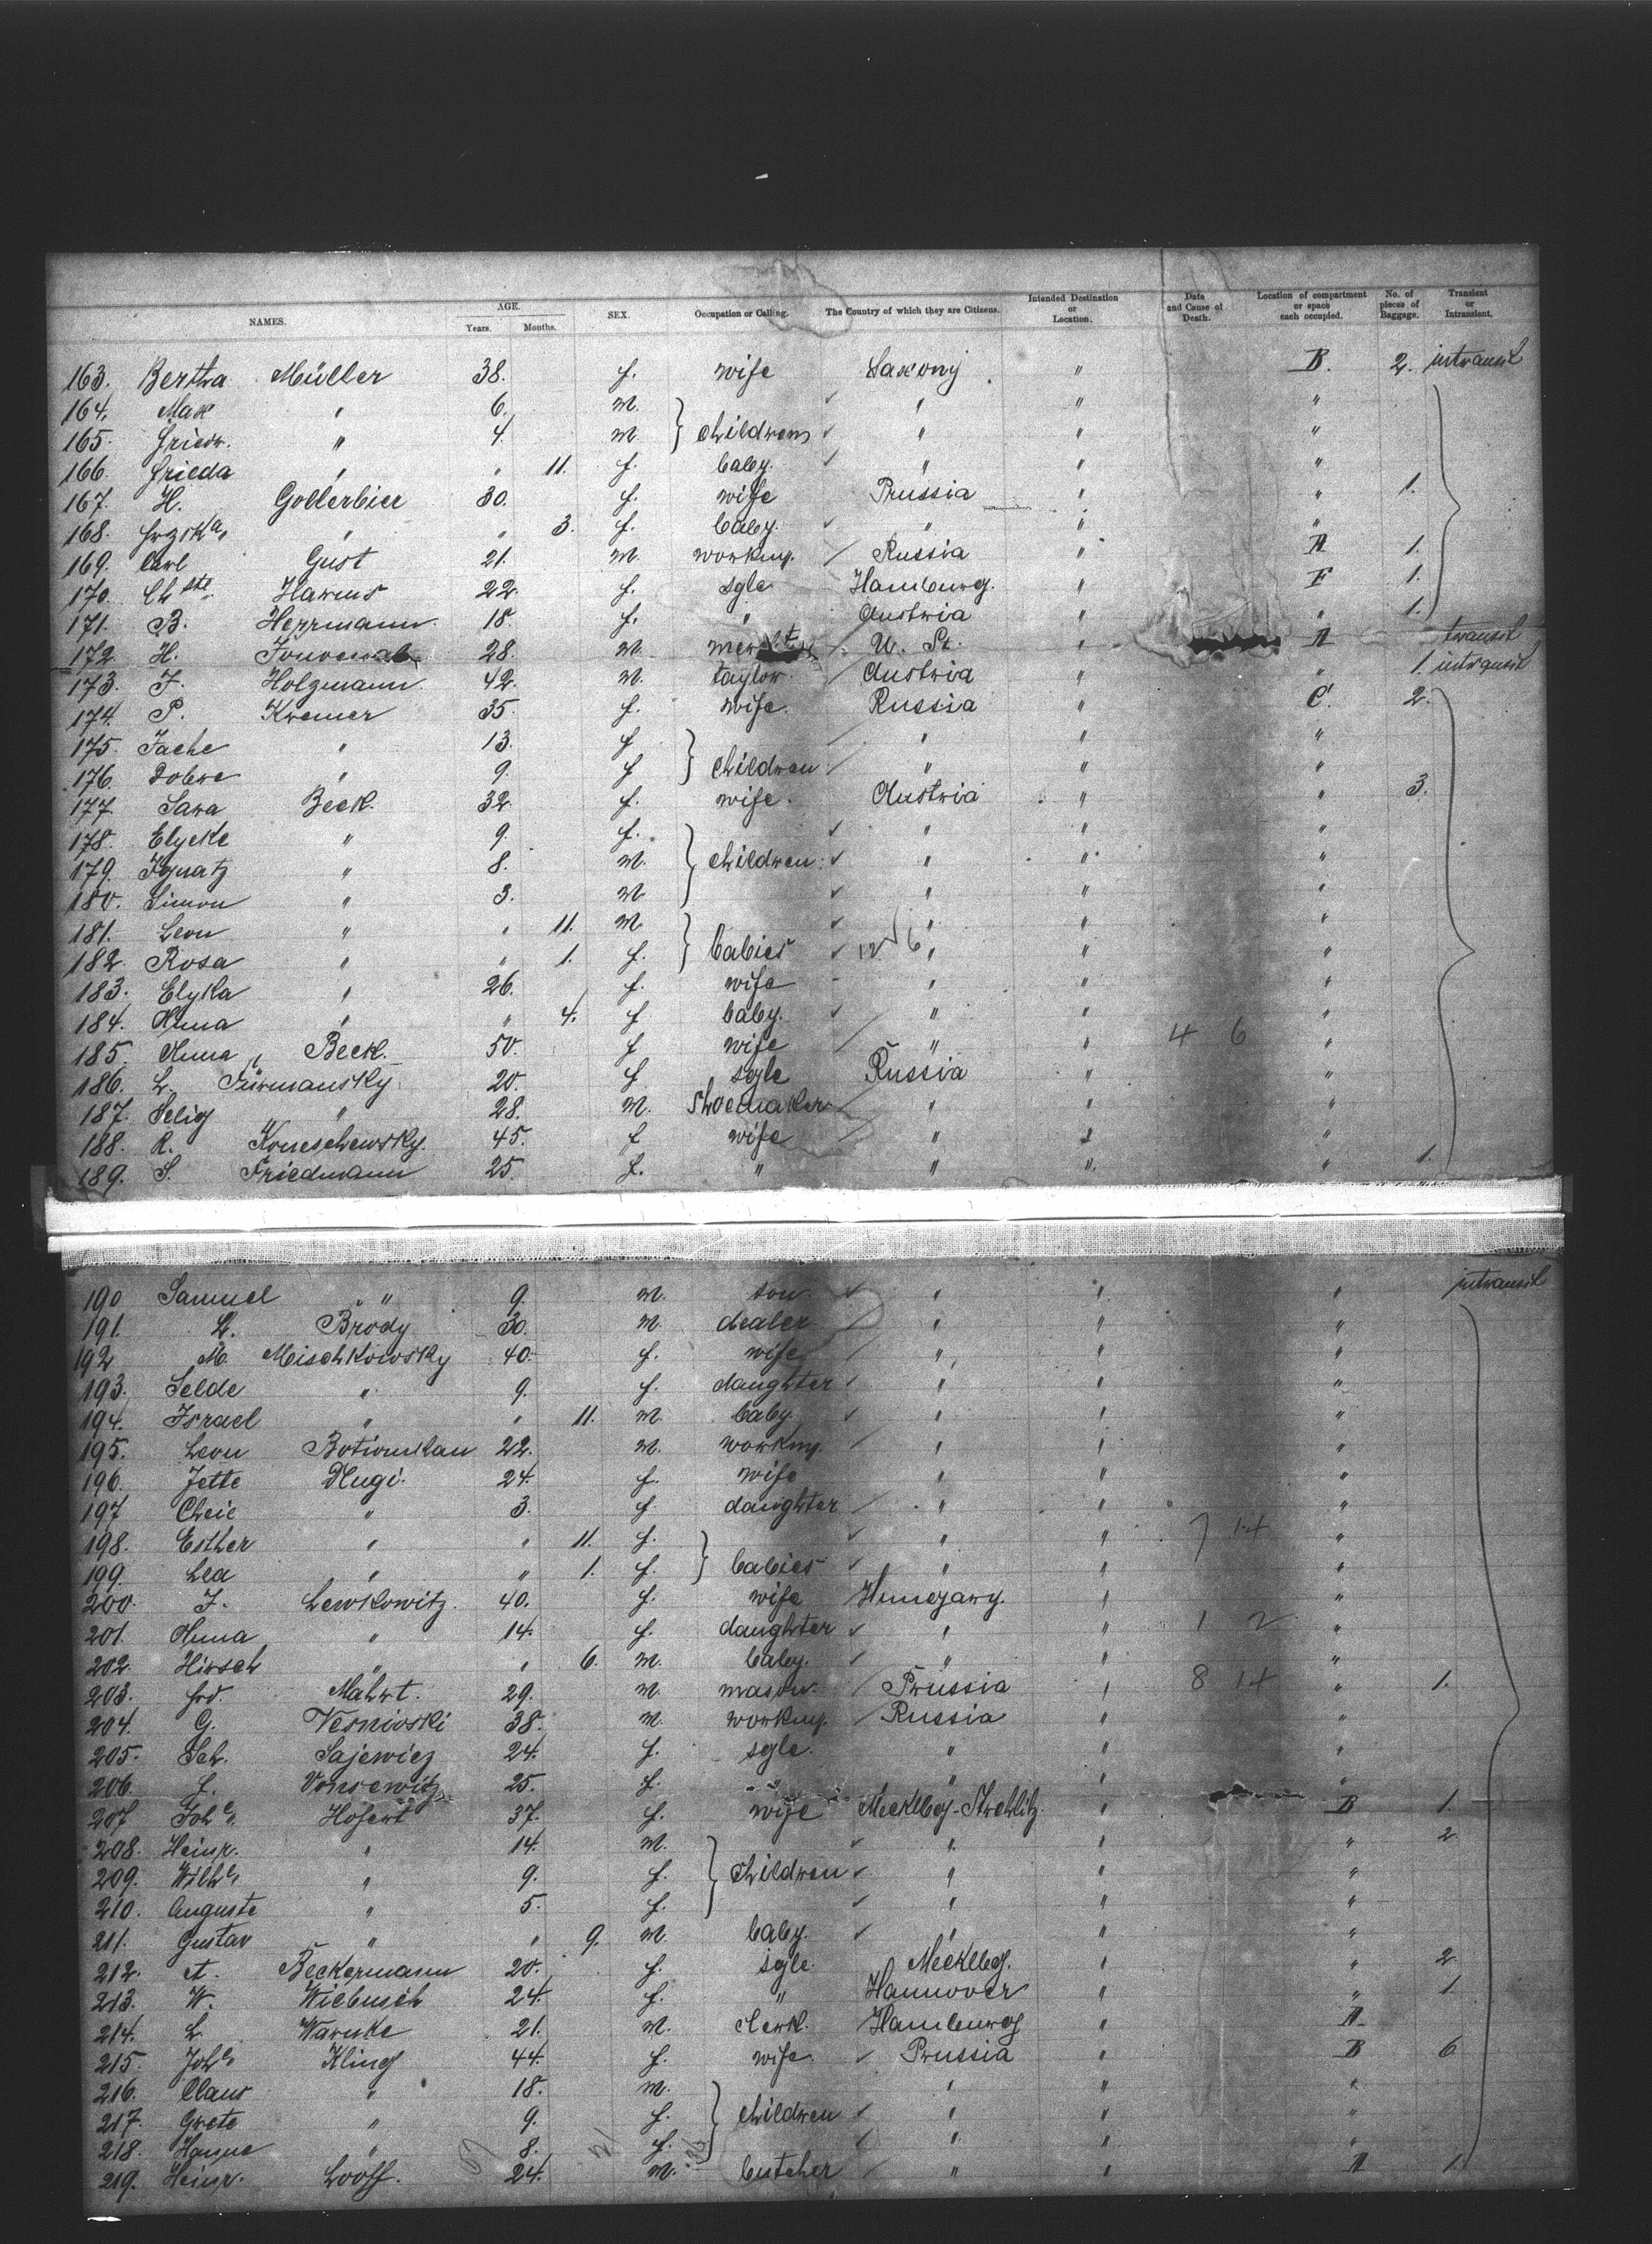 NAMES. AGE. Years. Months. SEX. Occupation or Calling. The Country of which they are Citizens. Intended Destination or Location. Date and Cause of Death. Location of compartment or space each occupied. No. of pieces of Baggage. Transient or Intransient.
163. Bertha Müller 38. f. wife Saxony " B. 2. intransit
164. Max " 6. m. " " "
165. Friedr. " 4. m. } childrens " " "
166. Frieda " " 11. f. baby. " " "
167. H. 30. f. wife Prussia " " 1.
168. " " 3. f. baby. " " "
169. Carl Gust 21. m. workmg. Russia " A 1.
170. Harms 22. f. sgle Hamburg. " F 1.
171. B. Herrmann. 18. f. " Austria " " 1.
172. H. 28. m. U. St. " A transit
173. J. Holzmann. 42. m. taylor. Austria " " 1. intransit
174. P. Kremer 35. f. wife. Russia " C. 2.
175. Jache " 13. f " " "
176. Dobre " 9. f } children " " "
177. Sara Beck. 32. f. wife. Austria " " 3.
178. Elycke " 9. f. " " "
179. Ignatz " 8. m. } children " " "
180. Simon " 3. m " " "
181. Leon " " 11. m. " " "
182. Rosa " " 1. f. } babies 12 6 " " "
183. Elyka " 26. f. wife " " "
184. Anna " " 4. f baby. " " "
185. Anna Beck. 50. f wife " " 4 6 "
186. L. Fürmansky 20. f sgle Russia " "
187. Selig " 28. m. Shoemaker " " "
188. R. Koneschewsky. 45. f wife " " "
189. S. Friedmann 25. f. " " " " 1.
190 Samuel " 9. m. son. " " " intransit
191. L. Brody 30. m. dealer " " "
192 M. Mischkowsky 40. f. wife " " "
193. Selde " 9. f. daughter " " "
194. Israel " " 11. m. baby " " "
195. Leon 22. m. workmg. " " "
196. Jette Dlugi. 24. f. wife " " "
197 Cheie " 3. f daughter " " "
198. Esther " " 11. f. " " 7 14 "
199. Lea " " 1. f. } babies " " "
200. J. Lewkowitz. 40. f. wife Hungary. " "
201. Anna " 14. f. daughter " " 1 2 "
202. Hirsch " " 6. m. baby. " " "
203. Frd. Mahrt. 29. m. mason. Prussia " 8 14 " 1.
204. G. Vesnivski 38. m. workmg. Russia " "
205. Sch. Sajewicz 24. f. sgle. " " "
206. 25. f. " " " "
207 Joh. Hofert 37. f. wife Mecklbg-Strehlitz " B 1.
208. Heinr. " 14. m. " " " 2
209. Wilh. " 9. f. } children " " "
210. Auguste " 5. f. " " "
211. Gustav " " 9. m. baby. " " "
212. A. Beckermann 20. f. sgle. Mecklbg. " " 2.
213. W. Wiebusch 24. f. " Hannover " " 1.
214. L. Warnke 21. m. clerk. Hamburg " A
215. Joh. Kling 44. f. wife. Prussia " B 6
216. Claus " 18. m. " " "
217. Grete " 9. f. } children " " "
218. Hanne " 8. f. " " "
219. Heinr. Wolff. 24. m. butcher " " A 1.